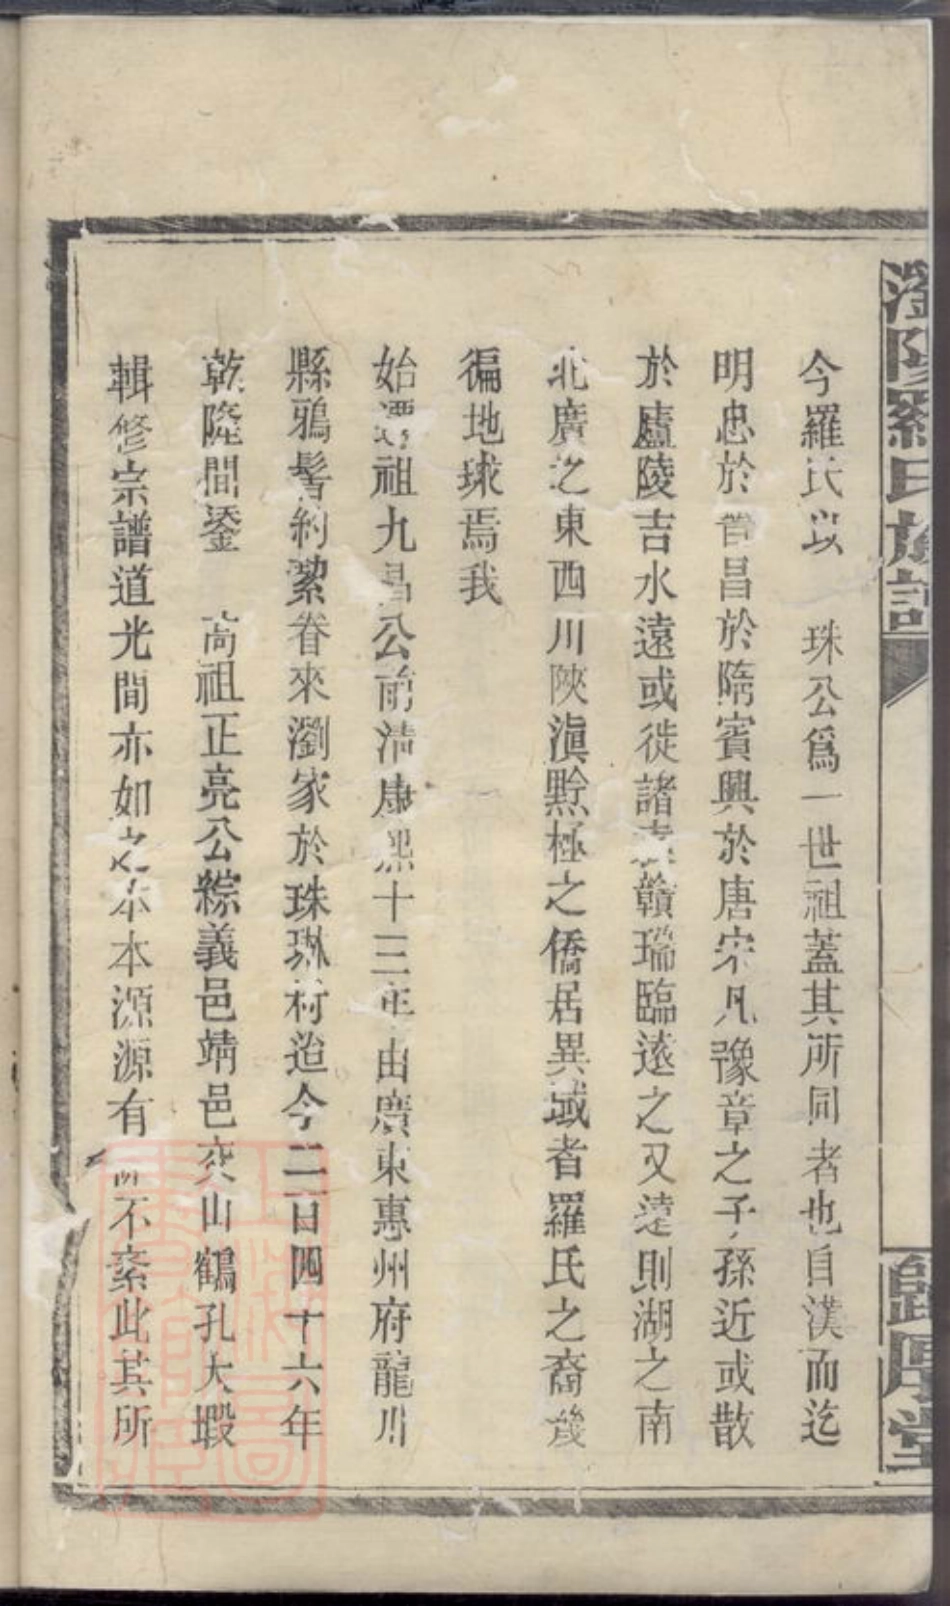 瀏陽羅氏族譜
今羅氏以 珠公爲一世祖蓋其所同者也自漢而迄
明忠於晉昌於隋賓興於唐宋凡豫章之子孫近或散
於廬陵吉水遠或徙諸袁贛瑞臨遠之又遠則湖之南
北廣之東西川陝滇黔極之僑居異域者羅氏之裔幾
徧地球焉我
始遷祖九昌公前淸康熙十三年由廣東惠州府龍川
縣鴉髻約絜眷來瀏家於珠琳村迨今二百四十六年
乾隆間鋈 高祖正亮公綜義邑靖邑奕山鶴孔大塅
輯修宗譜道光間亦如之木本源源有 不紊此其所